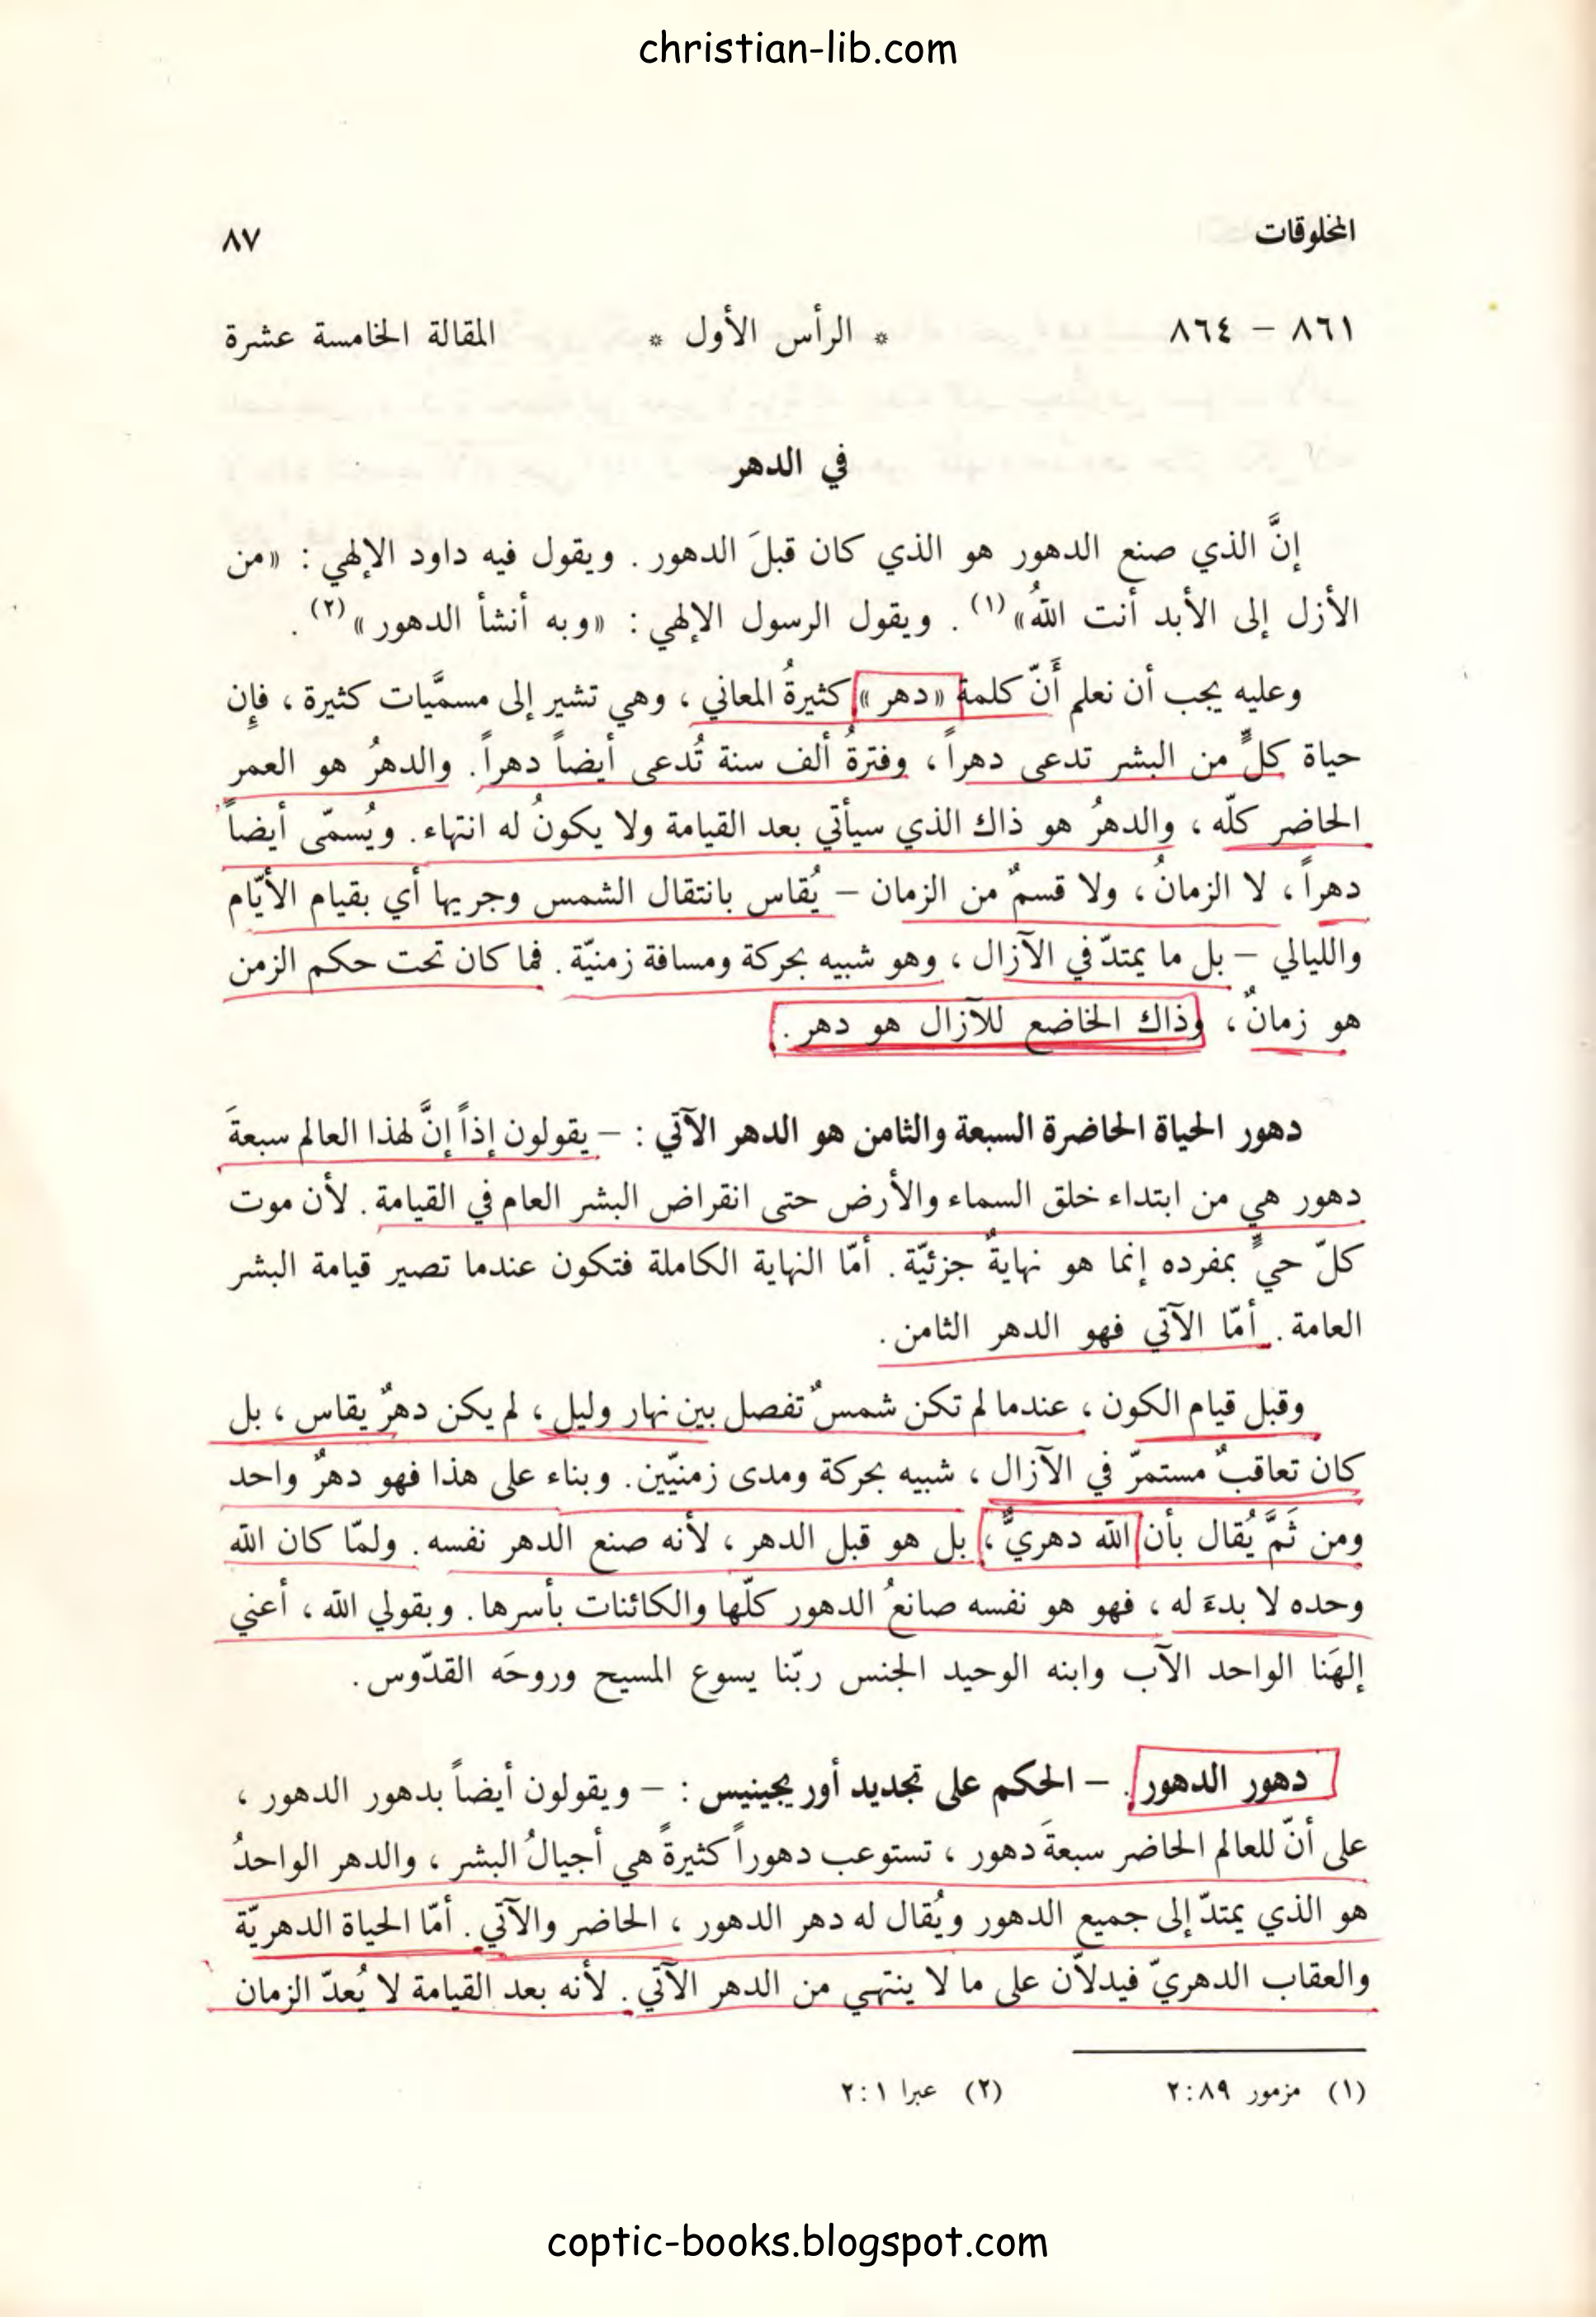 christian-lib.com
المخلوقات ٨٧
٨٦١ – ٨٦٤ * الرأس الأول * المقالة الخامسة عشرة
في الدهر
إنَّ الذي صنع الدهور هو الذي كان قبلَ الدهور. ويقول فيه داود الإلهي: «من
الأزل إلى الأبد أنت اللهُ»(١). ويقول الرسول الإلهي: «وبه أنشأ الدهور»(٢).
وعليه يجب أن نعلم أَنّ كلمة «دهر» كثيرةُ المعاني، وهي تشير إلى مسمَّيات كثيرة، فإن
حياة كلٍّ من البشر تدعى دهراً، وفترةُ ألف سنة تُدعى أيضاً دهراً. والدهرُ هو العمر
الحاضر كلّه، والدهرُ هو ذاك الذي سيأتي بعد القيامة ولا يكونُ له انتهاء. ويُسمّى أيضاً
دهراً، لا الزمانُ، ولا قسمٌ من الزمان – يُقاس بانتقال الشمس وجريها أي بقيام الأيّام
والليالي – بل ما يمتدّ في الآزال، وهو شبيه بحركة ومسافة زمنيّة. فما كان تحت حكم الزمن
هو زمانٌ، وذاك الخاضع للآزال هو دهر.
دهور الحياة الحاضرة السبعة والثامن هو الدهر الآتي: – يقولون إذاً إنَّ لهذا العالم سبعةَ
دهور هي من ابتداء خلق السماء والأرض حتى انقراض البشر العام في القيامة. لأن موت
كلّ حيٍّ بمفرده إنما هو نهايةٌ جزئيّة. أمّا النهاية الكاملة فتكون عندما تصير قيامة البشر
العامة. أمّا الآتي فهو الدهر الثامن.
وقبل قيام الكون، عندما لم تكن شمسٌ تفصل بين نهار وليل، لم يكن دهرٌ يقاس، بل
كان تعاقبٌ مستمرّ في الآزال، شبيه بحركة ومدى زمنيّين. وبناء على هذا فهو دهرٌ واحد
ومن ثَمَّ يُقال بأن الله دهريٌّ، بل هو قبل الدهر، لأنه صنع الدهر نفسه. ولمّا كان الله
وحده لا بدءَ له، فهو هو نفسه صانعُ الدهور كلّها والكائنات بأسرها. وبقولي الله، أعني
إلهَنا الواحد الآب وابنه الوحيد الجنس ربّنا يسوع المسيح وروحَه القدّوس.
دهور الدهور. – الحكم على تجديد أوريجينيس: – ويقولون أيضاً بدهور الدهور،
على أنّ للعالم الحاضر سبعةَ دهور، تستوعب دهوراً كثيرةً هي أجيالُ البشر، والدهر الواحدُ
هو الذي يمتدّ إلى جميع الدهور ويُقال له دهر الدهور، الحاضر والآتي. أمّا الحياة الدهريّة
والعقاب الدهريّ فيدلاّن على ما لا ينتهي من الدهر الآتي. لأنه بعد القيامة لا يُعدّ الزمان
(١) مزمور ٨٩:٢ (٢) عبرا ١:٢
coptic-books.blogspot.com